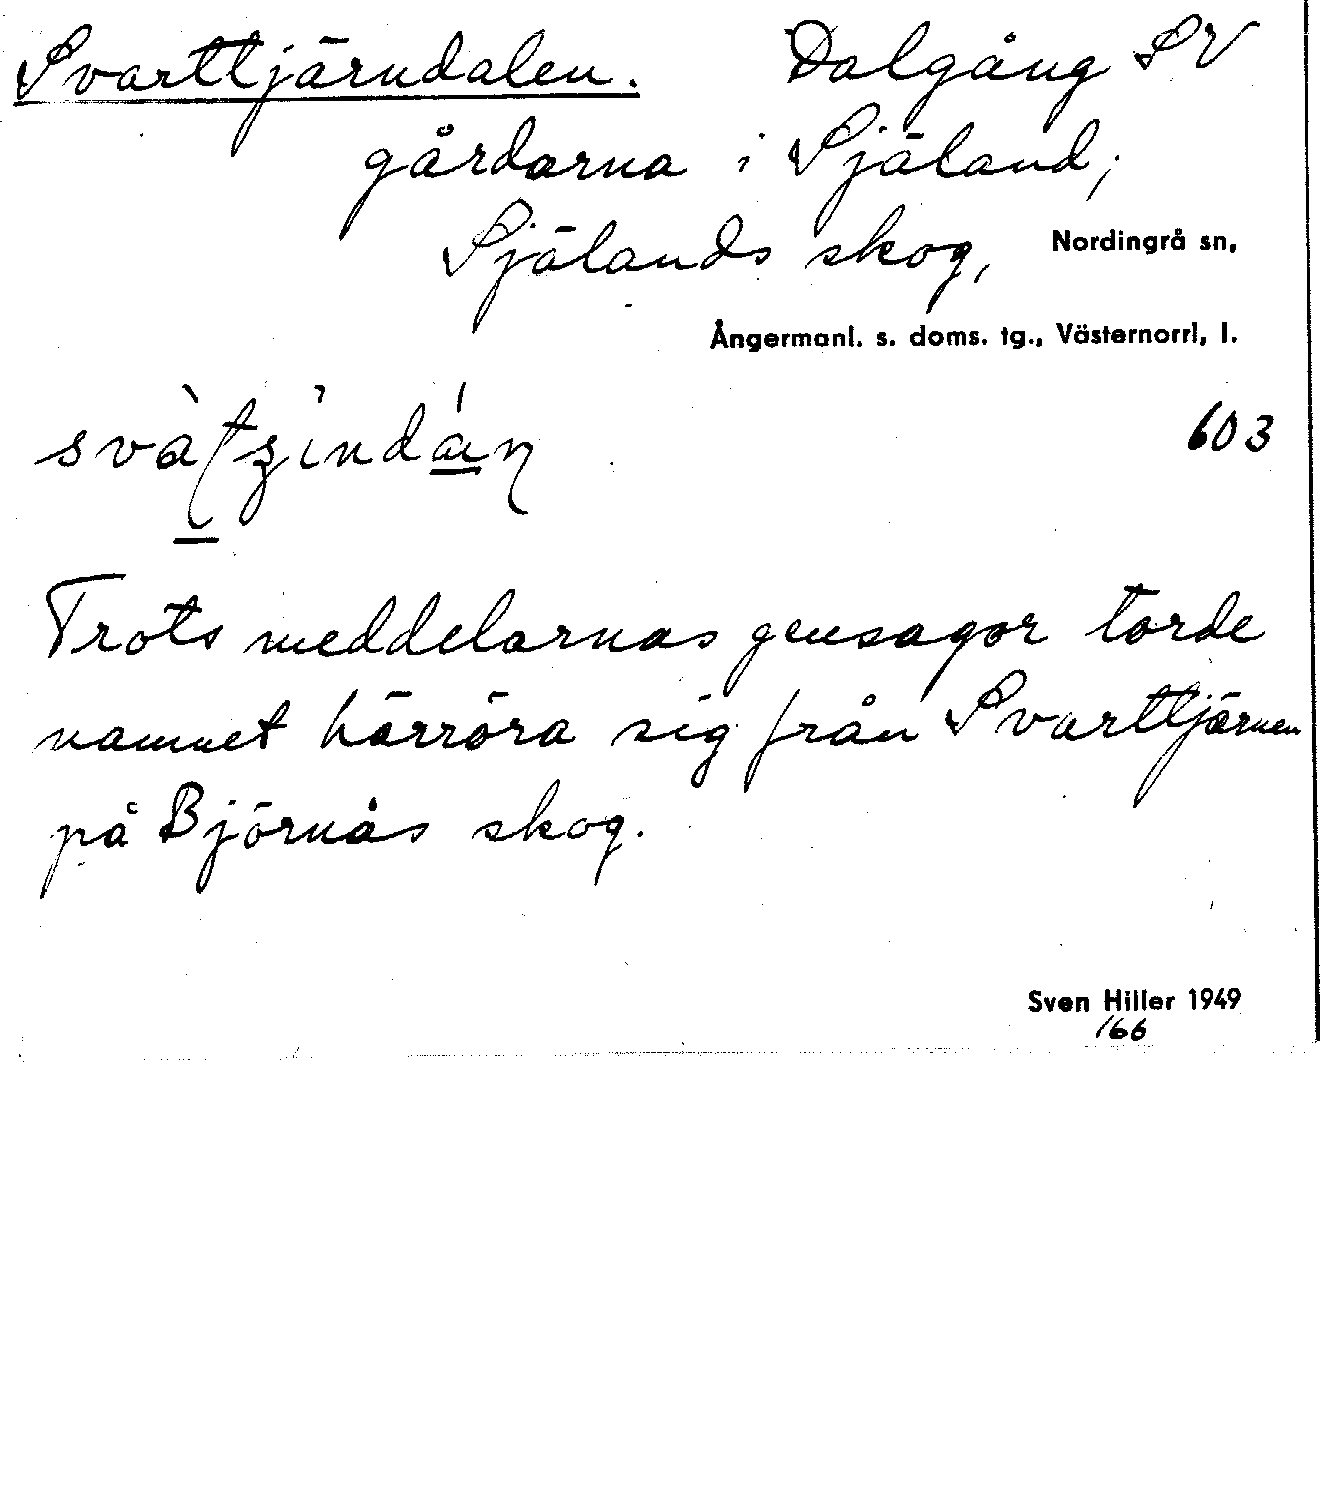 Svarttjärndalen. Dalgång SV
gårdarna i Själand,
Själands skog, Nordingrå sn,
Ångermanl. s. doms. tg., Västernorrl. l.
603
Trots meddelarnas gensagor torde
namnet härröra sig från Svarttjärnen
på Björnås skog.
Sven Hiller 1949
166